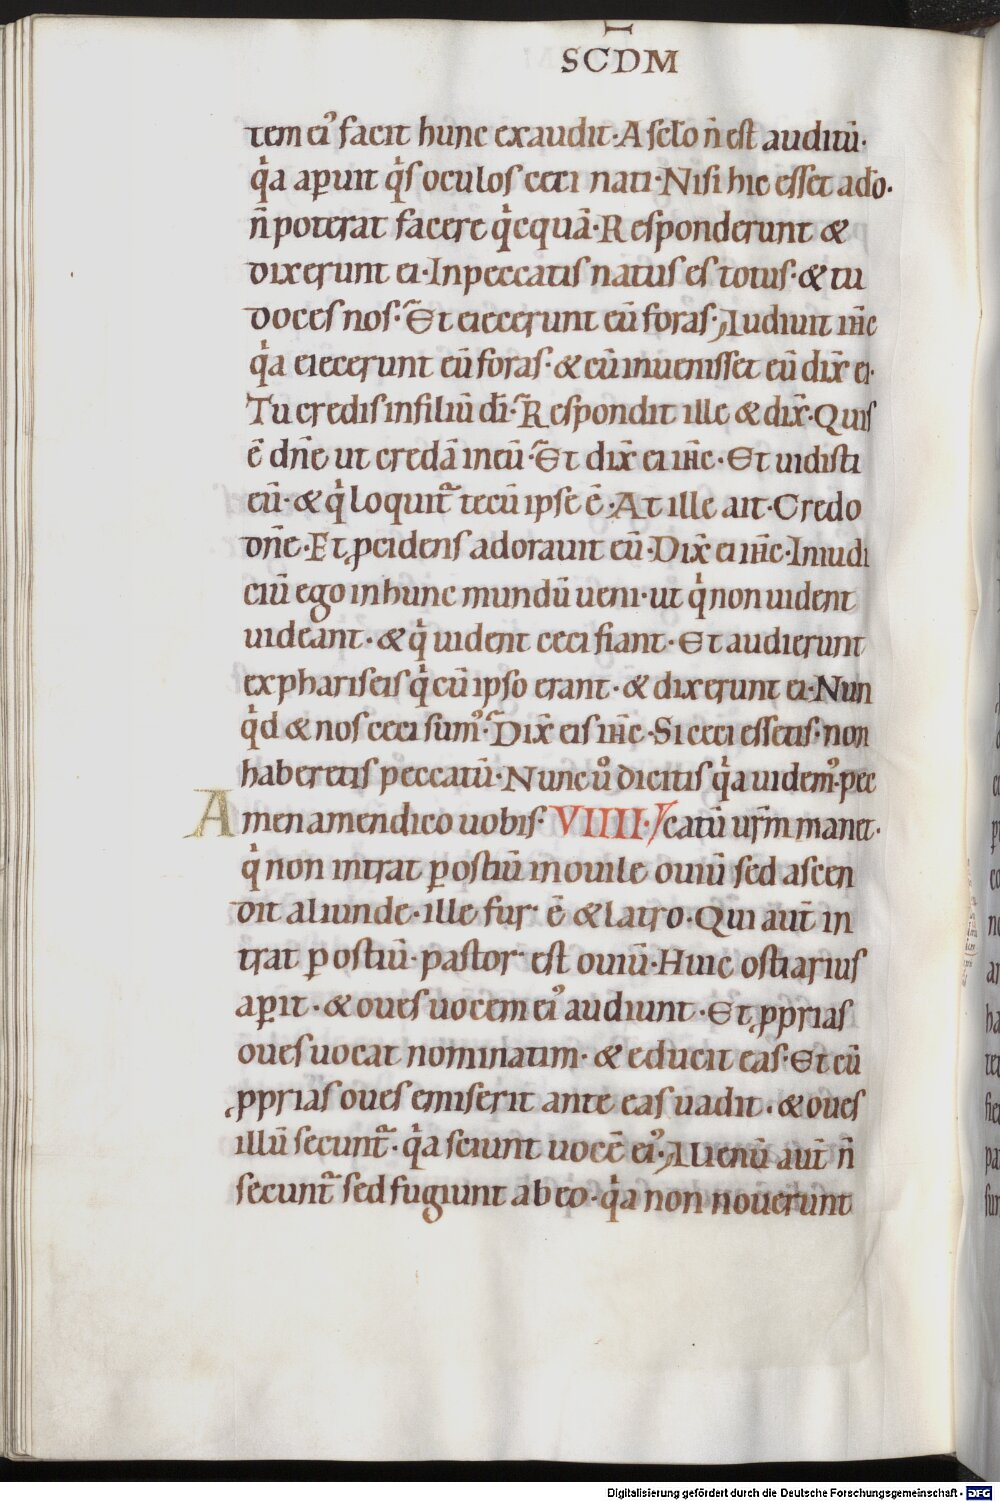 SCDM
tem ei᾿ facit hunc exaudit · A sc̄lo n̄ est auditū ·
qͥa aꝑuit qͥs oculos ceci nati · Nisi hic esset a dō ·
n̄ poterat facere qͥcquā · Responderunt &
dixerunt ei · In peccatis natus es totus · & tu
doces nos · Et eiecerunt eū foras · Audiuit ih̄c
qͥa eiecerunt eū foras · & cū inuenisset eū dix̄ ei ·
Tu credis in filiū dī · Respondit ille & dix̄ · Quis
ē dn̄e ut credā in eū · Et dix̄ ei ih̄c · Et uidisti
eū · & qͥ loquit᷑ tecū ipse ē · At ille ait · Credo
dn̄e · Et ꝓcidens adorauit eū · Dix̄ ei ih̄c · In iudi
ciū ego in hunc mundū ueni · ut qͥ non uident
uideant · & qͥ uident ceci fiant · Et audierunt
ex phariseis qͥ cū ipso erant · & dixerunt ei · Nun
qͥd & nos ceci sum᾿ · Dix̄ eis ih̄c · Si ceci essetis · non
haberetis peccatū · Nunc uͦ dicitis qͥa uidem᾿ · pec
Amen amen dico uobis · VIIII · catū ur̄m manet ·
qͥ non intrat ꝑ ostiū in ouile ouiū sed ascen
dit aliunde · ille fur ē & latro · Qui aut̄ in
trat ꝑ ostiū · pastor est ouiū · Huic ostiarius
aꝑit · & oues uocem ei᾿ audiunt · Et ꝓprias
oues uocat nominatim · & educit eas · Et cū
ꝓprias oues emiserit ante eas uadit · & oues
illū secunt᷑ · qͥa sciunt uocē ei᾿ · Alienū aut̄ n̄
secunt᷑ sed fugiunt ab eo · qͥa non nouerunt
Digitalisierung gefördert durch die Deutsche Forschungsgemeinschaft - DFG